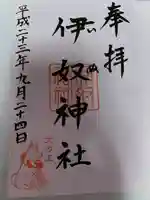 奉拝
伊奴神社
いぬ
平成二十三年九月二十四日